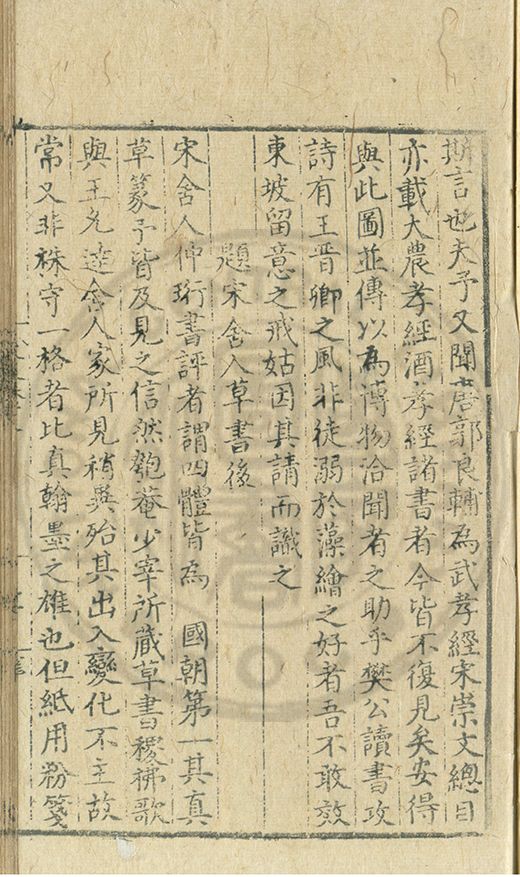 斯言也夫予又聞唐郭良輔為武孝經宋崇文總目
亦載大農孝經酒孝經諸書者今皆不復見矣安得
與此圖並傳以為博物洽聞者之助乎樊公讀書攻
詩有王晉卿之風非徒溺於藻繪之好者吾不敢效
東坡留意之戒姑因其請而識之
題宋舍人草書後
宋舍人仲珩書評者謂四體皆為 國朝第一其真
草篆予皆及見之信然匏菴少宰所藏草書穆拂歌
與王允達舍人家所見稍異殆其出入變化不主故
常又非株守一格者比真翰墨之雄也但紙用粉箋